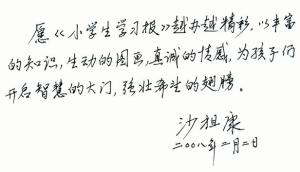 愿《小学生学习报》越办越精彩,以丰富
的知识,生动的图画,真诚的情感,为孩子们
开启智慧的大门,强壮希望的翅膀。
沙祖康
二〇〇八年二月二日